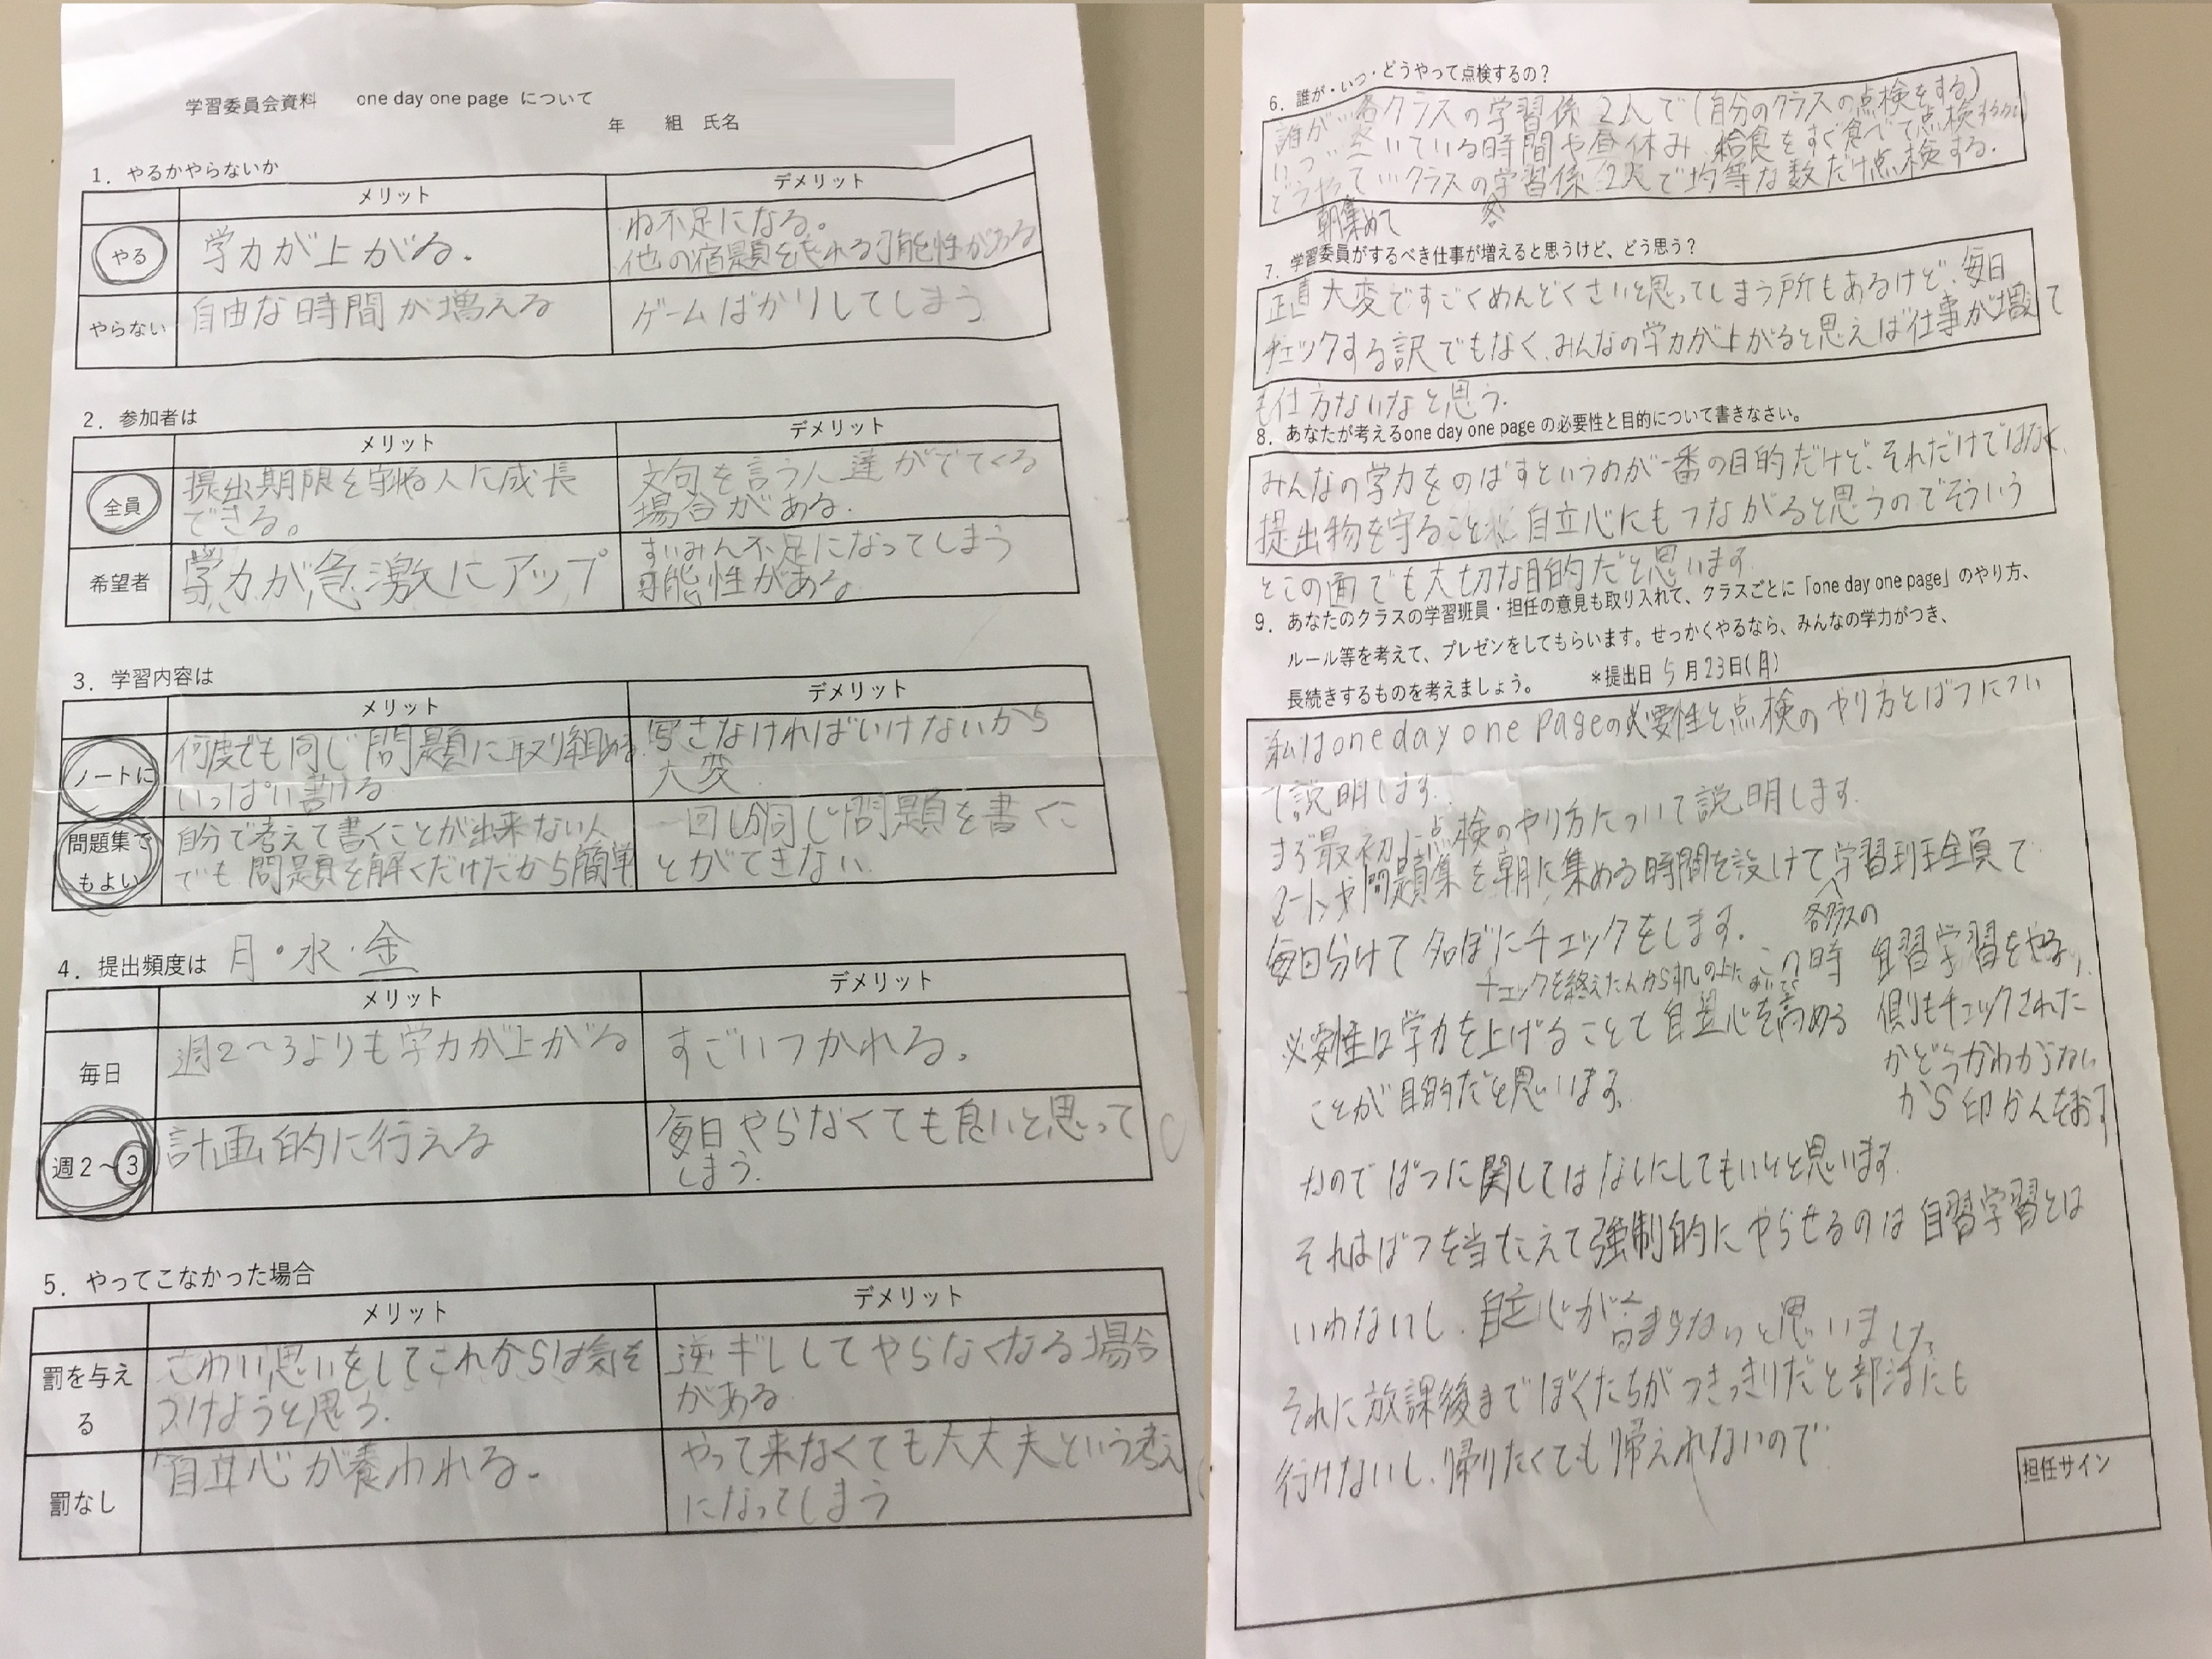 学習委員会資料 one day one page について
年 組 氏名
1．やるかやらないか
メリット デメリット
やる 学力が上がる. ね不足になる。
他の宿題を忘れる可能性がある
やらない 自由な時間が増える ゲームばかりしてしまう
2．参加者は
メリット デメリット
全員 提出期限を守れる人に成長 文句を言う人達がでてくる
できる。 場合がある.
希望者 学力が急激にアップ すいみん不足になってしまう
可能性がある
3．学習内容は
メリット デメリット
ノートに 何度でも同じ問題に取り組める. 写さなければいけないから
いっぱい書ける 大変.
問題集で 自分で考えて書くことが出来ない人 一回しか同じ問題を書くこ
もよい でも問題を解くだけだから簡単 とができない.
4．提出頻度は 月・水・金
メリット デメリット
毎日 週2〜3よりも学力が上がる すごいつかれる。
週2〜3 計画的に行える 毎日やらなくても良いと思って
しまう.
5．やってこなかった場合
メリット デメリット
罰を与え こわい思いをしてこれからは気を 逆ギレしてやらなくなる場合
る つけようと思う. がある.
罰なし 自立心が養われる. やって来なくても大丈夫という考え
になってしまう
6．誰が・いつ・どうやって点検するの？
誰が…各クラスの学習係2人で(自分のクラスの点検をする)
いつ…空いている時間や昼休み 給食をすぐ食べて点検
どうやって…クラスの学習係2人で均等な数だけ点検する.
朝集めて 各
7．学習委員がするべき仕事が増えると思うけど、どう思う？
正直大変ですごくめんどくさいと思ってしまう所もあるけど、毎日
チェックする訳でもなく、みんなの学力が上がると思えば仕事が増えて
も仕方ないなと思う.
8．あなたが考えるone day one page の必要性と目的について書きなさい。
みんなの学力をのばすというのが一番の目的だけど、それだけではなく、
提出物を守ること 自立心にもつながると思うのでそういう
とこの面でも大切な目的だと思います.
9．あなたのクラスの学習班員・担任の意見も取り入れて、クラスごとに「one day one page」のやり方、
ルール等を考えて、プレゼンをしてもらいます。せっかくやるなら、みんなの学力がつき、
長続きするものを考えましょう。 ＊提出日 5月23日(月)
私はone day one pageの必要性と点検のやり方とばつについ
て説明します.
まず最初に点検のやり方について説明します.
ノートや問題集を朝に集める時間を設けて学習班全員で
各クラスの
毎日分けて名ぼにチェックをします. この時 自習学習をやる
チェックを終えたんから机の上においてく
必要性は学力を上げることて自立心を高める 側もチェックされた
ことが目的だと思います. かどうかわからない
から印かんをおす
なのでばつに関してはなしにしてもいいと思います.
それはばつを当たえて強制的にやらせるのは自習学習とは
いわないし、自立心が高まらないと思いました
それに放課後までぼくたちがつきっきりだと部活にも
行けないし、帰りたくても帰えれないので
担任サイン